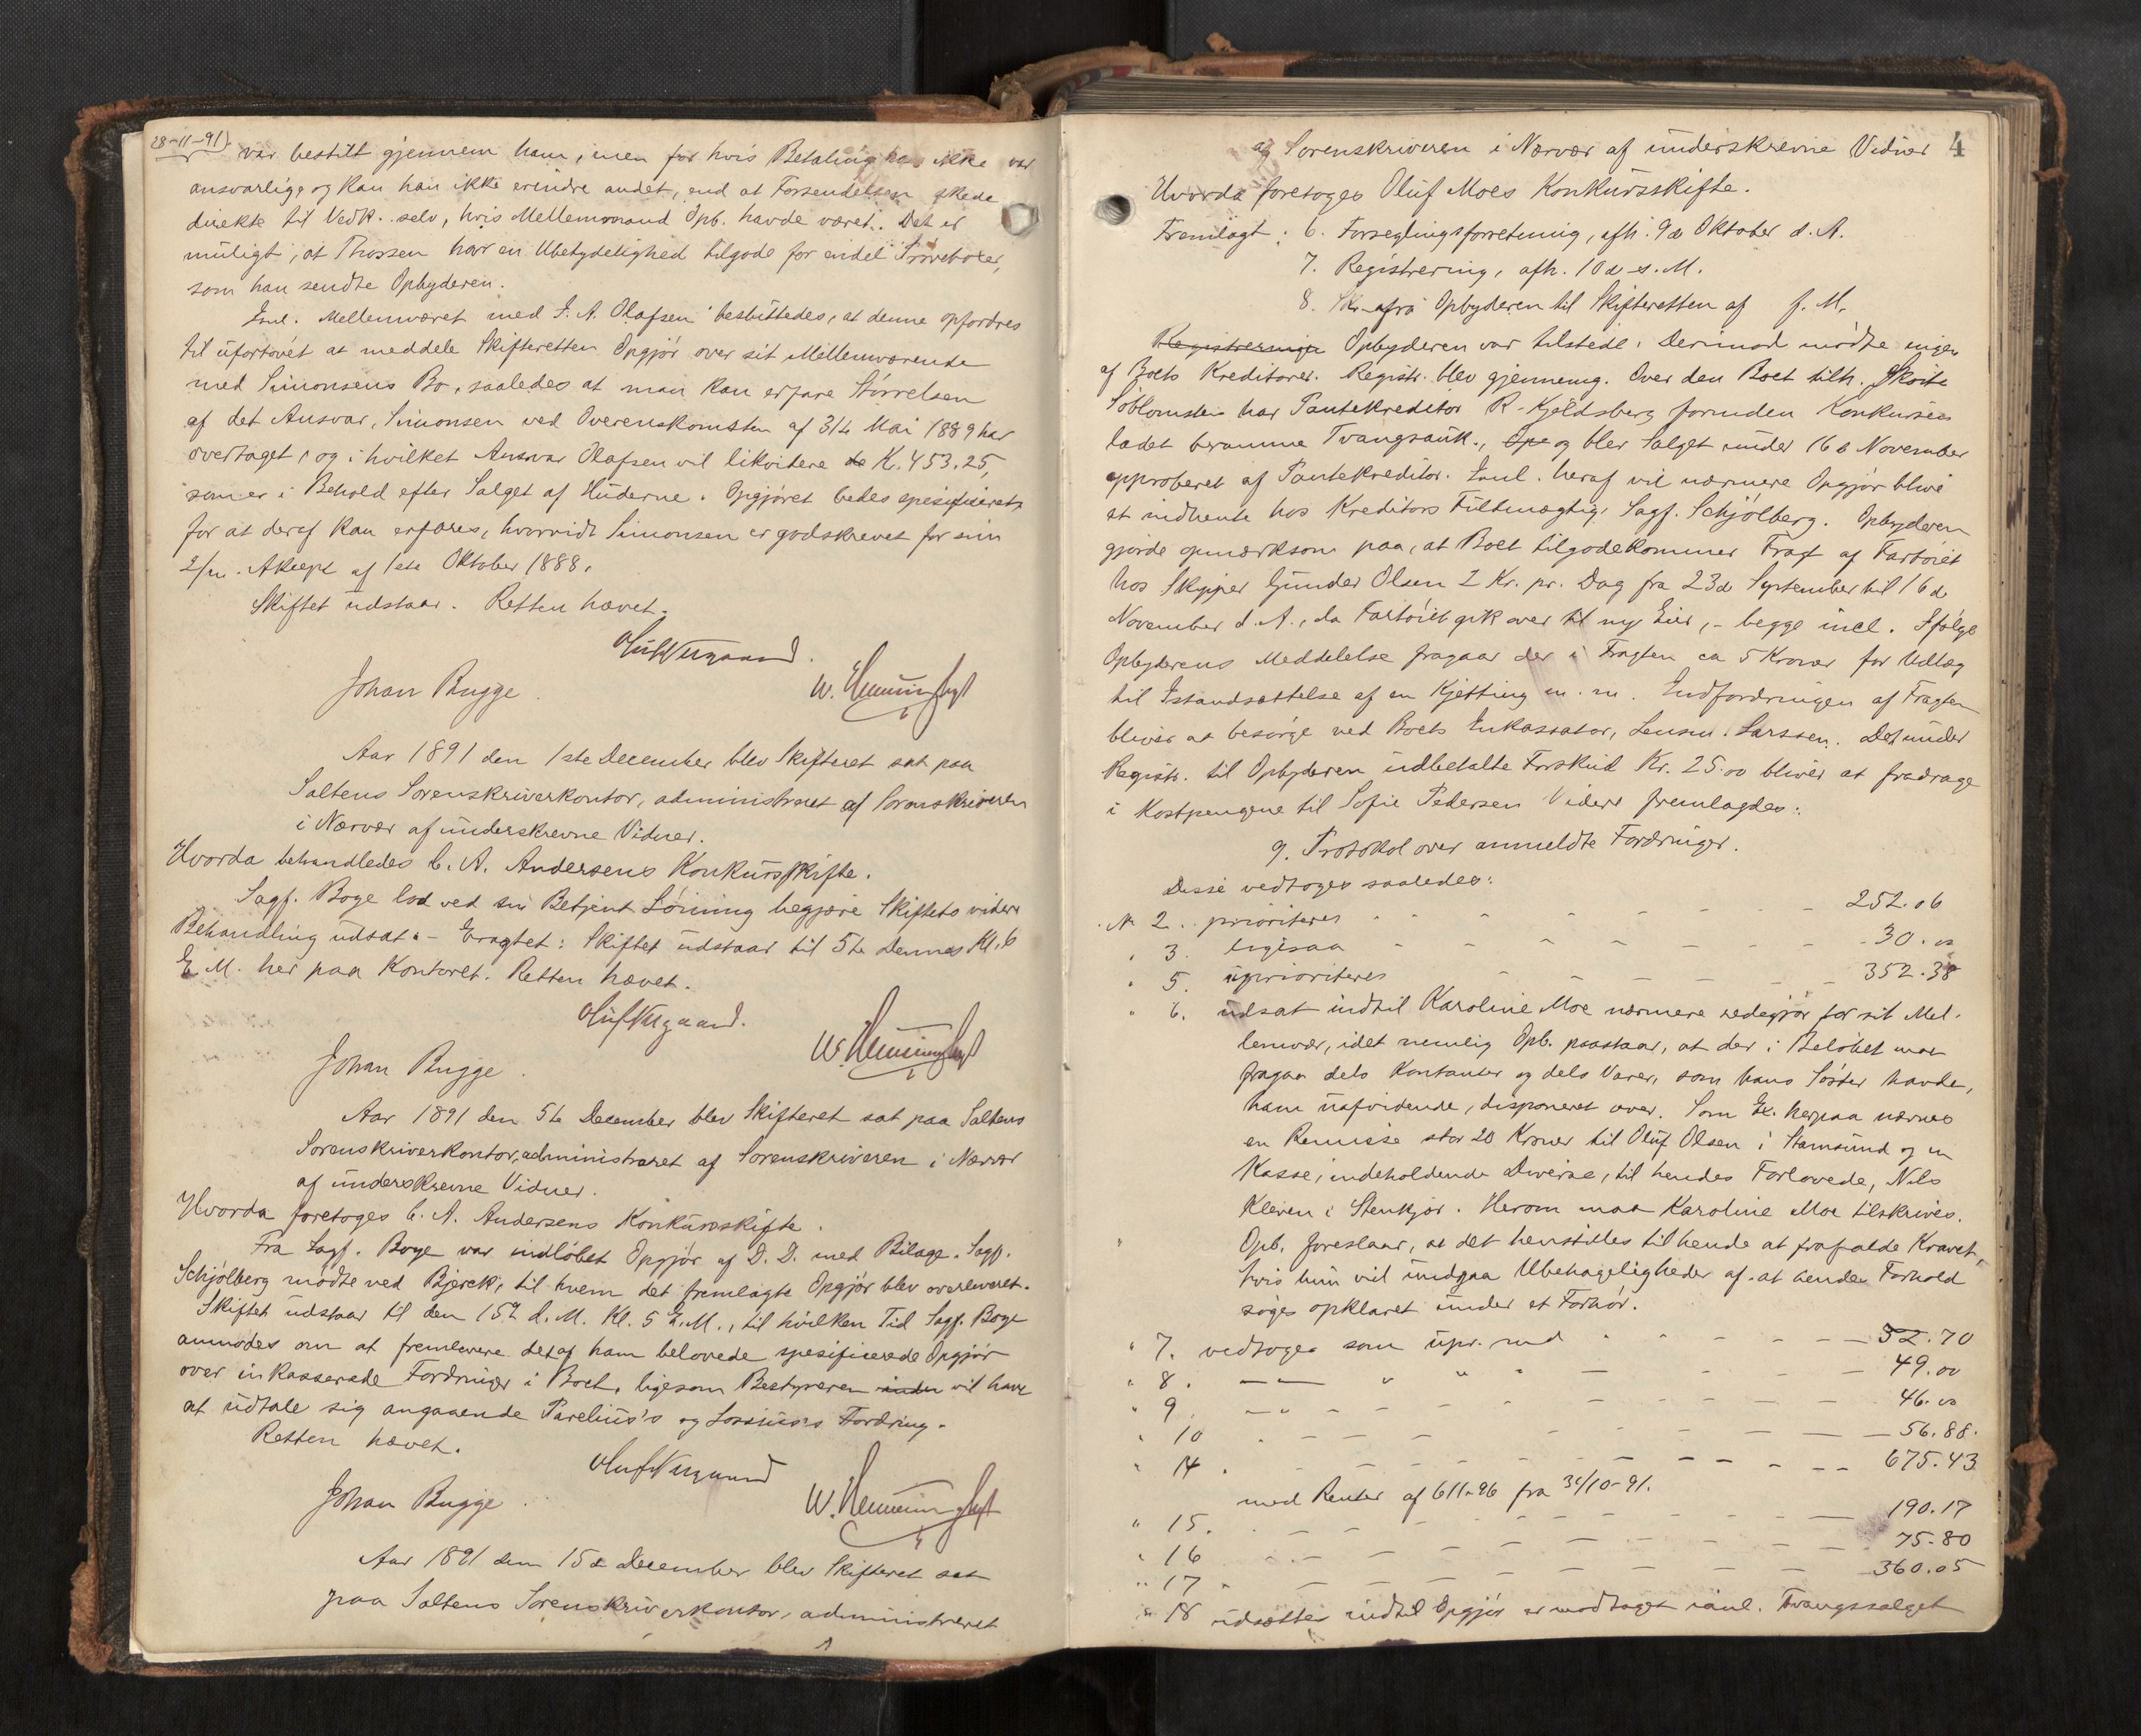 28-11-91).
var bestilt gjennem ham, men for hvis Betaling han ikke var
ansvarlig og kan han ikke erindre andet, end at Forsendelsen skede
direkte til Vedk. selv, hvis Mellemmand Opb. havde været. Det er
muligt, at Thossen har en Ubetydelighed tilgode for endel Prøveboxer,
som han sendte Opbyderen.
Mellemværet med J. A. Olafsen besluttedes, at denne opfordres
til ufortøvet at meddele Skifteretten Opgjør over sit Mellemværende
med Simonsens Bo, saaledes at man kan erfare Størrelsen
af det Ansvar, Simonsen ved Overenskomsten af 31te Mai 1889 har
overtaget, og i hvilket Ansvar Olafsen vil likvidere de K. 453.25,
som er i Behold efter Salget af Huderne. Opgjøret bedes spesificeret,
for at deraf kan erfares, hvorvidt Simonsen er godskrevet for sin
2/m. Akcept af 1ste Oktober 1888.
Skiftet udstaar. Retten hævet.
Johan Bugge.
Aar 1891 den 1ste December blev Skifteret sat paa
Saltens Sorenskriverkontor, administreret af Sorenskriveren
i Nærvær af underskrevne Vidner.
Hvorda behandledes C. A. Andersens Konkursskifte.
Sagf. Boye lod ved sin Betjent Lorining begjære Skiftets videre
Behandling udsat. - Eragtet: Skiftet udstaar til 5te Dennes Kl. 6
E. M. her paa Kontoret. Retten hævet.
Johan Bugge.
Aar 1891 den 5te December blev Skifteret sat paa Saltens
Sorenskriverkontor, administreret af Sorenskriveren i Nærvær
af underskrevne Vidner.
Hvorda foretoges C. A. Andersens Konkursskifte.
Fra Sagf. Boye var indløbet Opgjør af D. D. med Bilage. Sagf.
Schjølberg mødte ved Bjerck, til hvem det fremlagte Opgjør blev overleveret.
Skiftet udstaar til den 15de d. M. Kl. 5 E. M., til hvilken Tid Sagf. Boye
anmodes om at fremlevere det af ham belovede spesificerede Opgjør
over inkasserede Fordringer i Boet, ligesom Bestyreren inden vil have
at udtale sig angaaende Parelius's og Lossius's Fordring.
Retten hævet.
Johan Bugge
Aar 1891 den 15de December blev Skifteret sat
paa Saltens Sorenskriverkontor, administreret
4
af Sorenskriveren i Nærvær af underskrevne Vidner
Hvorda foretoges Oluf Moes Konkursskifte.
Fremlagt: 6. Forseglingsforretning, afh. 9de Oktober d. A.
7. Registrering, afh. 10de s. M.
8. Skr. fra Opbyderen til Skifteretten af f. M.
Registrering Opbyderen var tilstede. Derimod mødte ingen
af Boets Kreditorer. Registr. blev gjennemg. Over den Boet tilh. Skøite
Soblomsten har Pantekreditor R. Kjeldsberg forinden Konkursen
ladet beramme Tvangsauk., og blev Salget under 16de November
approberet af Pantekreditor. heraf vil nærmere Opgjør blive
at indhente hos Kreditors Fuldmægtig, Sagf. Schjølberg. Opbyderen
gjorde opmærksom paa, at Boet tilgodekommer Fragt af Fartøiet
hos Skipper Gunder Olsen 2 Kr. pr. Dag fra 23de September til 16de
November d. A., da Fartøiet gik over til ny Eier, - begge incl. Ifølge
Opbyderens Meddelelse fragaar der i Fragten ca 5 Kroner for Udlæg
til Istandsættelse af en Kjetting m. m. Indfordringen af Fragten
bliver at besørge ved Boets Inkassator, Lensm. Larssen. Det under
Registr. til Opbyderen udbetalte Forskud Kr. 25.00 bliver at fradrage
i Kostpengene til Sofie Pedersen Videre fremlagdes:
9. Protokol over anmeldte Fordringer.
Disse vedtoges saaledes:
N 2. prioriteres - - - - - - 252.06
" 3. ligesaa - - - - - - 30.00
" 5. uprioriteres - - - - - 352.38
" 6. udsat indtil Karoline Moe nærmere redegjør for sit Mel-
lemvær, idet nemlig Opb. paastaar, at der i Beløbet maa
fragaa dels Kontanter og dels Varer, som hans Søster havde,
ham uafvidende, disponeret over. Som Ex. herpaa nævnes
en Remisse stor 20 Kroner til Oluf Olsen i Stamsund og en
Kasse, indeholdende Diverse, til hendes Forlovede, Nils
Kleven i Stenkjær. Herom maa Karoline Moe tilskrives.
Opb. foreslaar, at det henstilles til hende at frafalde Kravet,
hvis hun vil undgaa Ubehageligheder af at hendes Forhold
søges opklaret under et Forhør.
" 7. vedtoges som upr. med - - - - - 32.70
" 8. - - " " - - - 49.00
" 9. - - - - - - - 46.00
" 10 - - - - - - - 56.88.
" 14. - - - - - - - 675.43
med Renter af 611.96 fra 31/10-91.
" 15. - - - - - - - 190.17
" 16 - - - - - - - 75.80
" 17 - - - - - - - 360.05
" 18 udsættes indtil Opgjør er modtaget Tvangssalget